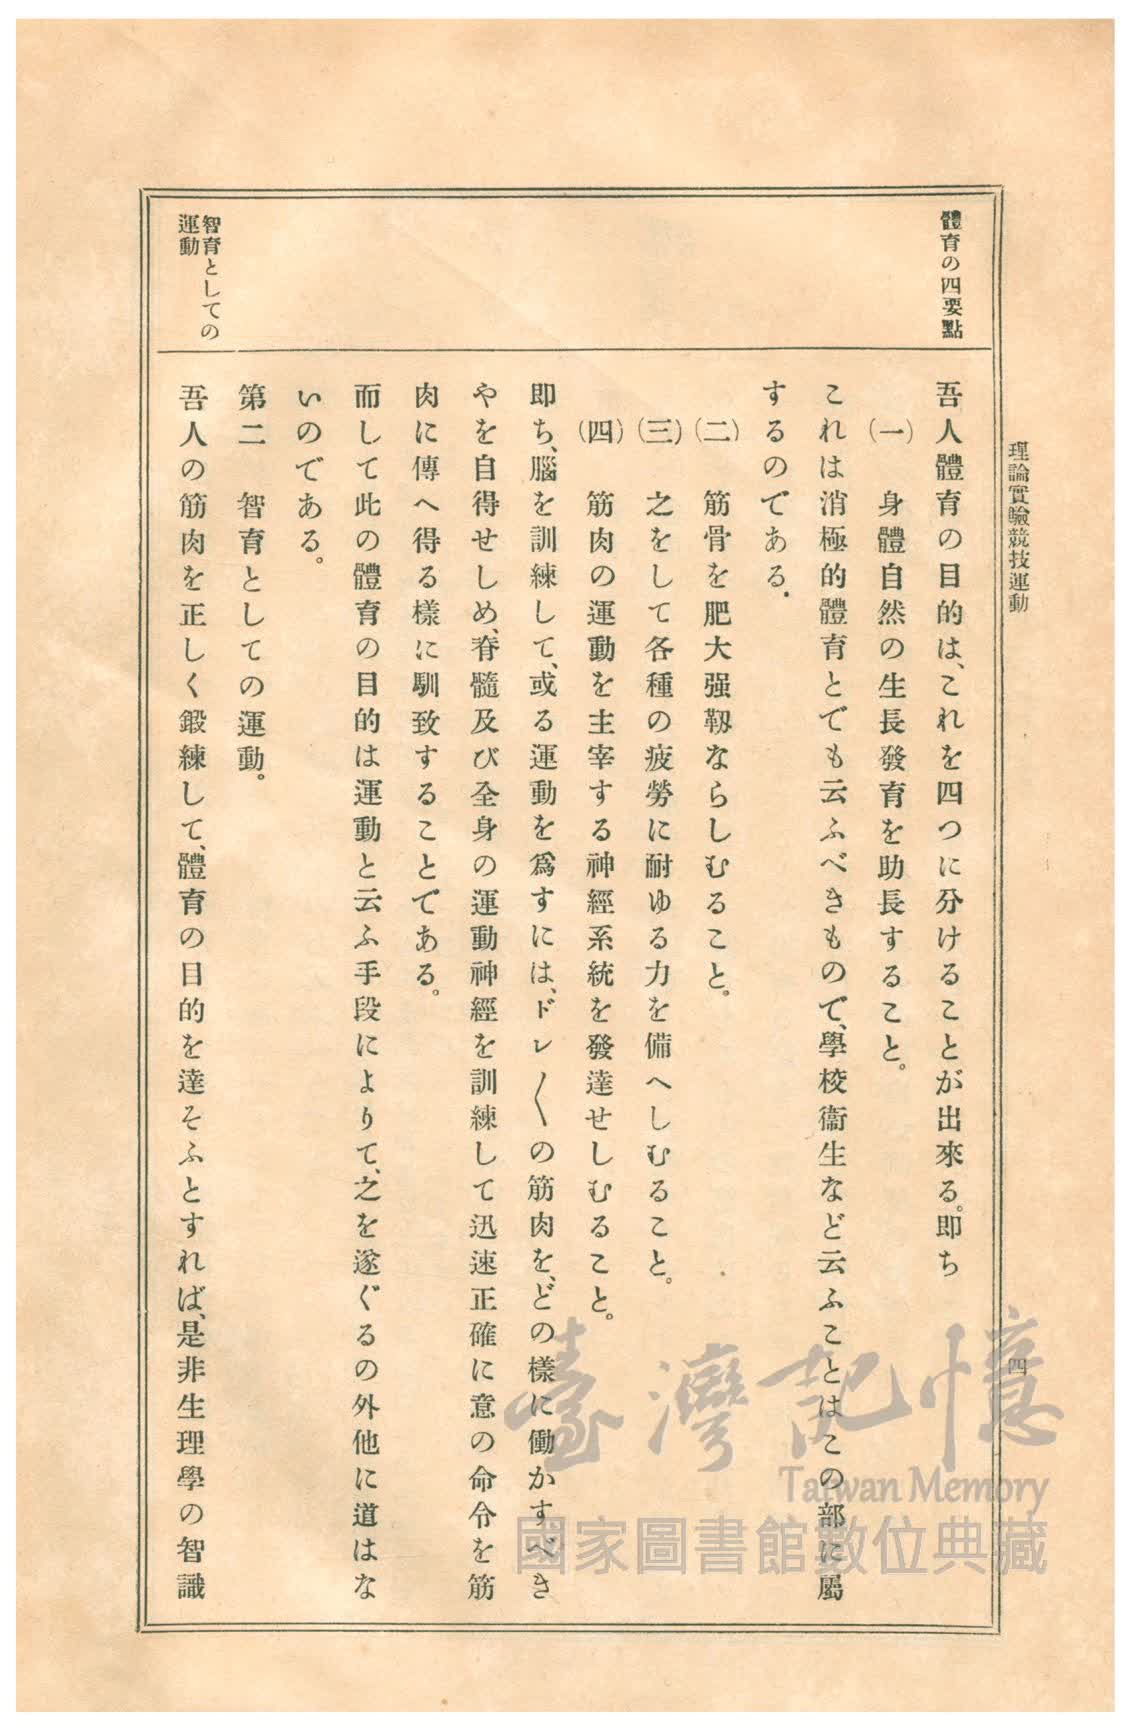 理論實驗競技運動
四
體育の四要點
吾人體育の目的は、これを四つに分けることが出來る。卽ち
(一) 身體自然の生長發育を助長すること。
これは消極的體育とでも云ふべきもので、學校衞生など云ふことはこの部に屬
するのである.
(二) 筋骨を肥大强靱ならしむること。
(三) 之をして各種の疲勞に耐ゆる力を備へしむること。
(四) 筋肉の運動を主宰する神經系統を發達せしむること。
卽ち、腦を訓練して、或る運動を爲すには、ドレ〱の筋肉を、どの樣に働かすべき
やを自得せしめ、脊髓及び全身の運動神經を訓練して迅速正確に意の命令を筋
肉に傳へ得る樣に馴致することである。
而して此の體育の目的は運動と云ふ手段によりて、之を遂ぐるの外他に道はな
いのである。
智育としての
運動
第二 智育としての運動。
吾人の筋肉を正しく鍛練して、體育の目的を達そふとすれば、是非生理學の智識
臺灣記憶
Taiwan Memory
國家圖書館數位典藏